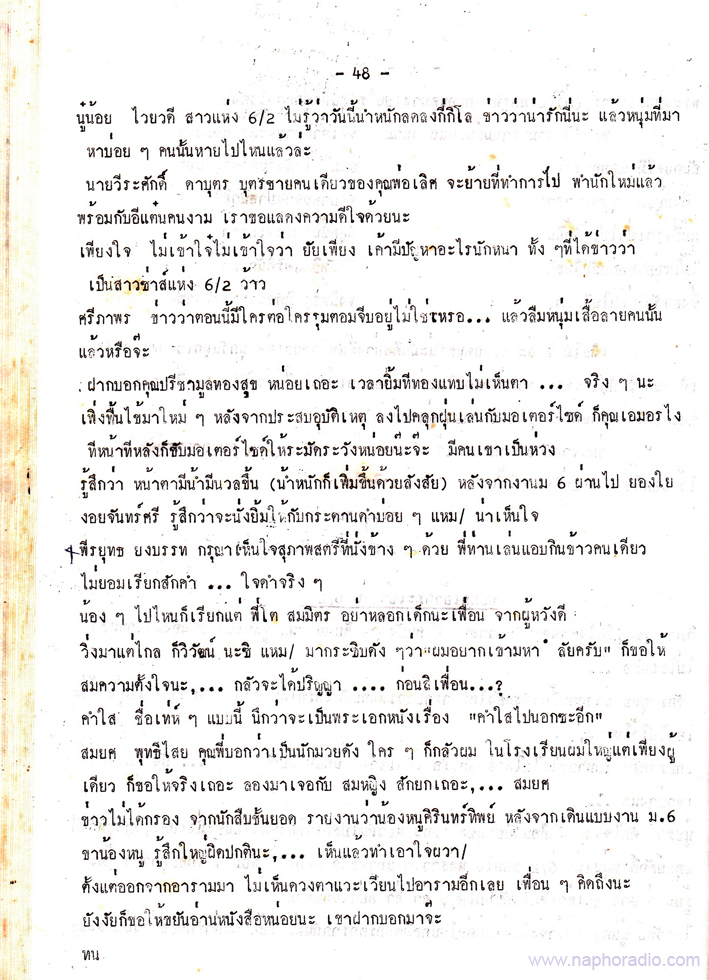 - 48 -
นู๋น้อย ไวยวดี สาวแห่ง 6/2 ไม่รู้ว่าวันนี้น้ำหนักลดลงกี่กิโล ข่าวว่าน่ารักนี่นะ แล้วหนุ่มที่มา
หาบ่อย ๆ คนนั้นหายไปไหนแล้วล่ะ
นายวีระศักดิ์ ดาบุตร บุตรชายคนเดียวของคุณพ่อเลิศ จะย้ายที่ทำการไป พำนักใหม่แล้ว
พร้อมกับอีแต๋นคนงาม เราขอแสดงความดีใจด้วยนะ
เพียงใจ ไม่เข้าใจ๋ไม่เข้าใจว่า ยัยเพียง เค้ามีปัญหาอะไรนักหนา ทั้ง ๆที่ได้ข่าวว่า
เป็นสาวซ่าส์แห่ง 6/2 ว้าว
ศรีภาพร ข่าวว่าตอนนี้มีใครต่อใครรุมตอมจีบอยู่ไม่ใช่เหรอ... แล้วลืมหนุ่มเสื้อลายคนนั้น
แล้วหรือจ๊ะ
ฝากบอกคุณปรีชามูลทองสุข หน่อยเถอะ เวลายิ้มทีทองแทบไม่เห็นตา ... จริง ๆ นะ
เพิ่งฟื้นไข้มาใหม่ ๆ หลังจากประสบอุบัติเหตุ ลงไปคลุกฝุ่นเล่นกับมอเตอร์ไซด์ ก็คุณเอมอรไง
ทีหน้าทีหลังก็ขับมอเตอร์ไซด์ให้ระมัดระวังหน่อยน๊ะจ๊ะ มีคนเขาเป็นห่วง
รู้สึกว่า หน้าตามีน้ำมีนวลขึ้น (น้ำหนักก็เพิ่มขึ้นด้วยสังสัย) หลังจากงานม 6 ผ่านไป ยองใย
งอยจันทร์ศรี รู้สึกว่าจะนั่งยิ้มให้กับกระดานดำบ่อย ๆ แหม/ น่าเห็นใจ
พีรยุทธ ยงบรรท กรุณาเห็นใจสุภาพสตรีที่นั่งข้าง ๆ ด้วย พี่ท่านเล่นแอบกินข้าวคนเดียว
ไม่ยอมเรียกสักคำ ... ใจดำจริง ๆ
น้อง ๆ ไปไหนก็เรียกแต่ พี่โต สมมิตร อย่าหลอกเด็กนะเพื่อน จากผู้หวังดี
วิ่งมาแต่ไกล ก็วิวัฒน์ นะซิ แหม/ มากระซิบดัง ๆว่า"ผมอยากเข้ามหา ลัยครับ" ก็ขอให้
สมความตั้งใจนะ,... กลัวจะได้ปริญญา .... ก่อนสิเพื่อน...?
คำใส ชื่อเท่ห์ ๆ แบบนี้ นึกว่าจะเป็นพระเอกหนังเรื่อง "คำใสไปนอกซะอีก"
สมยศ พุทธิไสย คุณพี่บอกว่าเป็นนักมวยดัง ใคร ๆ ก็กลัวผม ในโรงเรียนผมใหญ่แต่เพียงผู้
เดียว ก็ขอให้จริงเถอะ ลองมาเจอกับ สมหญิง สักยกเถอะ,... สมยศ
ข่าวไม่ได้กรอง จากนักสืบชั้นยอด รายงานว่าน้องหนูศิรินทร์ทิพย์ หลังจากเดินแบบงาน ม.6
ขาน้องหนู รู้สึกใหญ่ผิดปกตินะ,... เห็นแล้วทำเอาใจผวา/
ตั้งแต่ออกจากอารามมา ไม่เห็นดวงตาแวะเวียนไปอารามอีกเลย เพื่อน ๆ คิดถึงนะ
ยังงัยก็ขอให้ขยันอ่านหนังสือหน่อยนะ เขาฝากบอกมาจ๊ะ
ทน
www.naphoradio.com